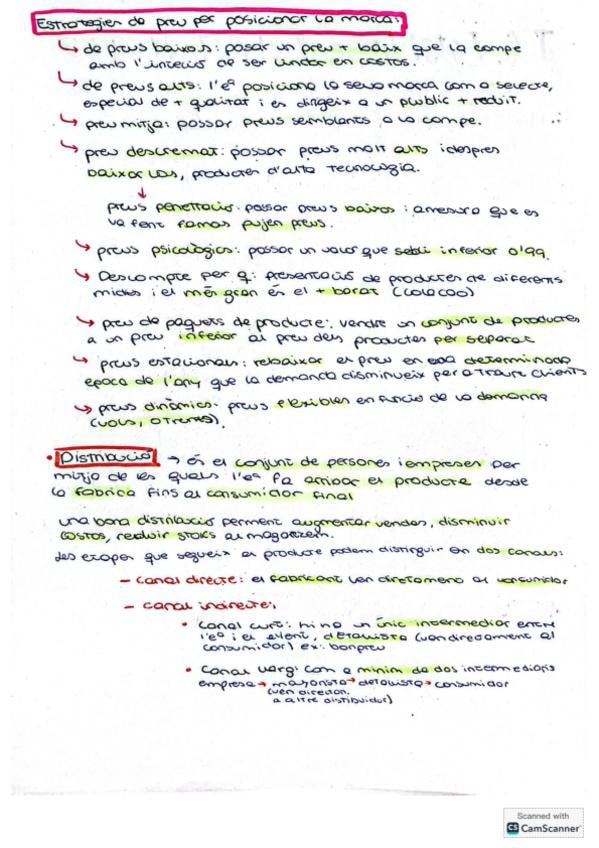 Estrategies de preu per posicionar la marca:
↳ de preus baixos: posar un preu + baix que la compe
amb l'interès de ser líder en costos.
↳ de preus alts: l'eª posiciona la seva marca com a selecte,
especial de + qualitat i es dirigeix a un públic + reduït.
↳ preu mitjà: possar preus semblants a la compe.
↳ preu descremat: possar preus molt alts i despres
baixar-los, productes d'alta tecnologia.
↓
preus penetració: possar preus baixos i amesura que es
va fent famós pujen preus.
↳ preus psicològics: possar un valor que sigui inferior 0'99.
↳ Descompte per q: presentació de productes de diferents
mides i el més gran és el + barat (colacao)
↳ preu de paquets de producte: vendre un conjunt de productes
a un preu inferior al preu dels productes per separat
↳ preus estacionals: rebaixar el preu en una determinada
època de l'any que la demanda disminueix per atraure clients
↳ preus dinàmics: preus flexibles en funció de la demanda
(vols, o trens).
• Distribució → és el conjunt de persones i empreses per
mitjà de les quals l'eª fa arribar el producte desde
la fabrica fins al consumidor final
una bona distribució perment augmentar vendes, disminuir
costos, reduir stocks al magatzem.
Les etapes que segueix el producte podem distinguir en dos canals:
– canal directe: el fabricant ven directament al consumidor
– canal indirecte:
• canal curt: hi ha un únic intermediari entre
l'eª i el client, detallista (ven directament al
consumidor) ex: bonpreu
• canal llarg: com a mínim de dos intermediaris
empresa → majorista → detallista → consumidor
(ven
a altre distribuidor)
Scanned with
CS CamScanner